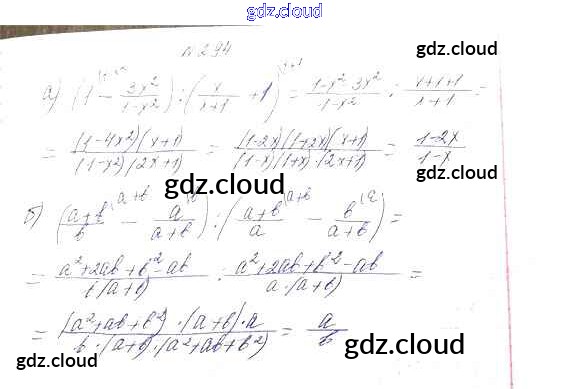 gdz.cloud
№ 294
gdz.cloud
а) (1 - 3x²/(1-x²)) : (x/(x+1) + 1) = (1-x²-3x²)/(1-x²) : (x+x+1)/(x+1) =
= (1-4x²)(x+1)/((1-x²)(2x+1)) = (1-2x)(1+2x)(x+1)/((1-x)(1+x)(2x+1)) = (1-2x)/(1-x)
gdz.cloud
gdz.cloud
б) ((a+b)/b - a/(a+b)) : ((a+b)/a - b/(a+b)) =
= (a²+2ab+b²-ab)/(b(a+b)) : (a²+2ab+b²-ab)/(a·(a+b)) =
= (a²+ab+b²)·(a+b)·a/(b·(a+b)·(a²+ab+b²)) = a/b
gdz.cloud
gdz.cloud
gdz.cloud